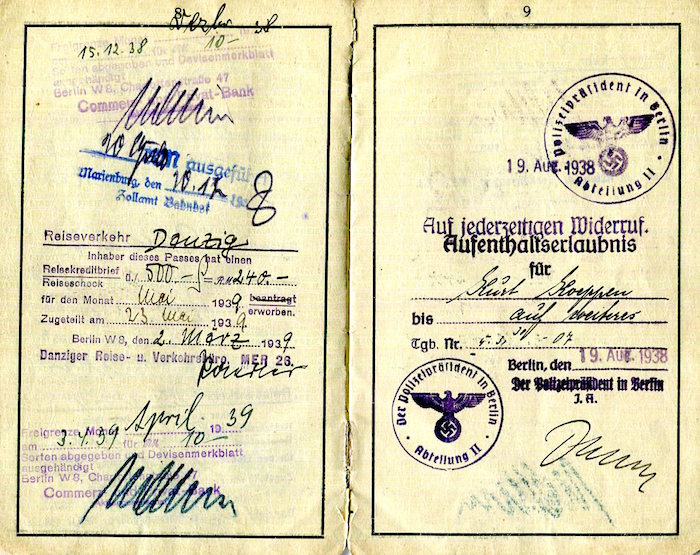 Dezbr. 38
Freigrenze Mona
15.12.38
10-
Sorten abgegeben und Devisenmerkblatt
ausgehändigt
Berlin W 8, Charlottenstraße 47
Commerz- Privat-Bank
ausgefüh
Marienburg, den 20.12 193
Zollamt Bahnhof
Reiseverkehr Danzig
Inhaber dieses Passes hat einen
Reisekreditbrief
Reisescheck
ü./ 500.- RM 240.-
für den Monat Mai 1939 beantragt
erworben.
Zugeteilt am 23. Mai 1939.
Berlin W 8, den 2. März 1939
Danziger Reise- u. Verkehrsbüro, MER 26.
April 39
Freigrenze Mona 19
am 3.4.39 für RM 10-
Sorten abgegeben und Devisenmerkblatt
ausgehändigt
Berlin W 8, Cha
Commerz Bank
9
Polizeipräsident in Berlin
Abteilung II
19. Aug. 1938
Auf jederzeitigen Widerruf.
Aufenthaltserlaubnis
für
Kurt Koeppen
bis auf weiteres
Tgb. Nr.
Berlin, den 19. Aug. 1938
Der Polizeipräsident in Berlin
J. A.
Der Polizeipräsident in Berlin
Abteilung II